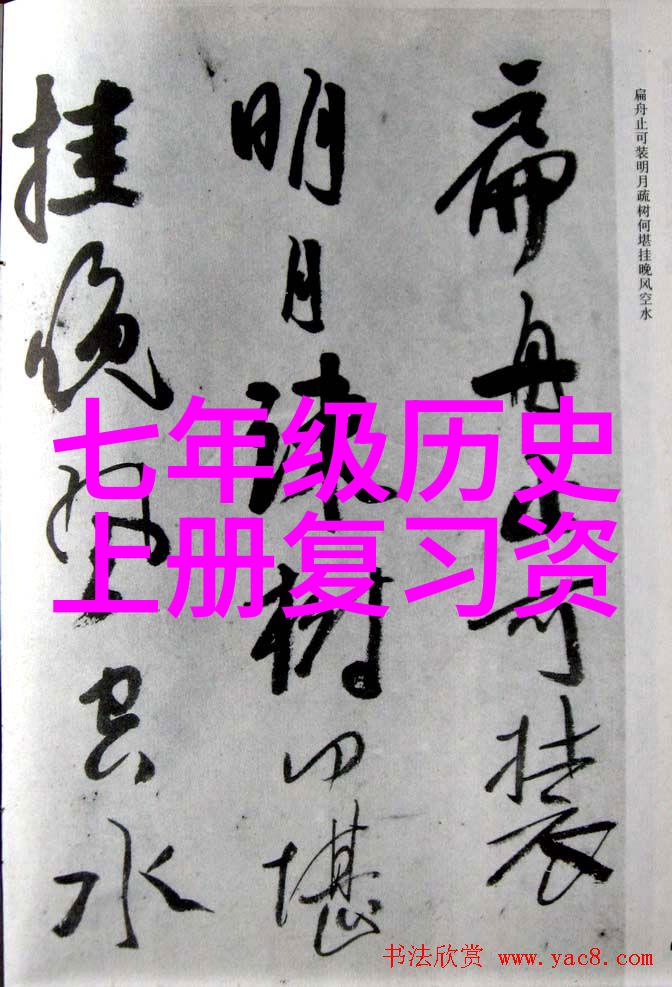 扁舟止可装明月疏树何堪挂晚风空水
扁舟止可装
明月疎树何堪
挂晚风空水
七年级历史
上册复习资
书法欣赏 www.yac8.com